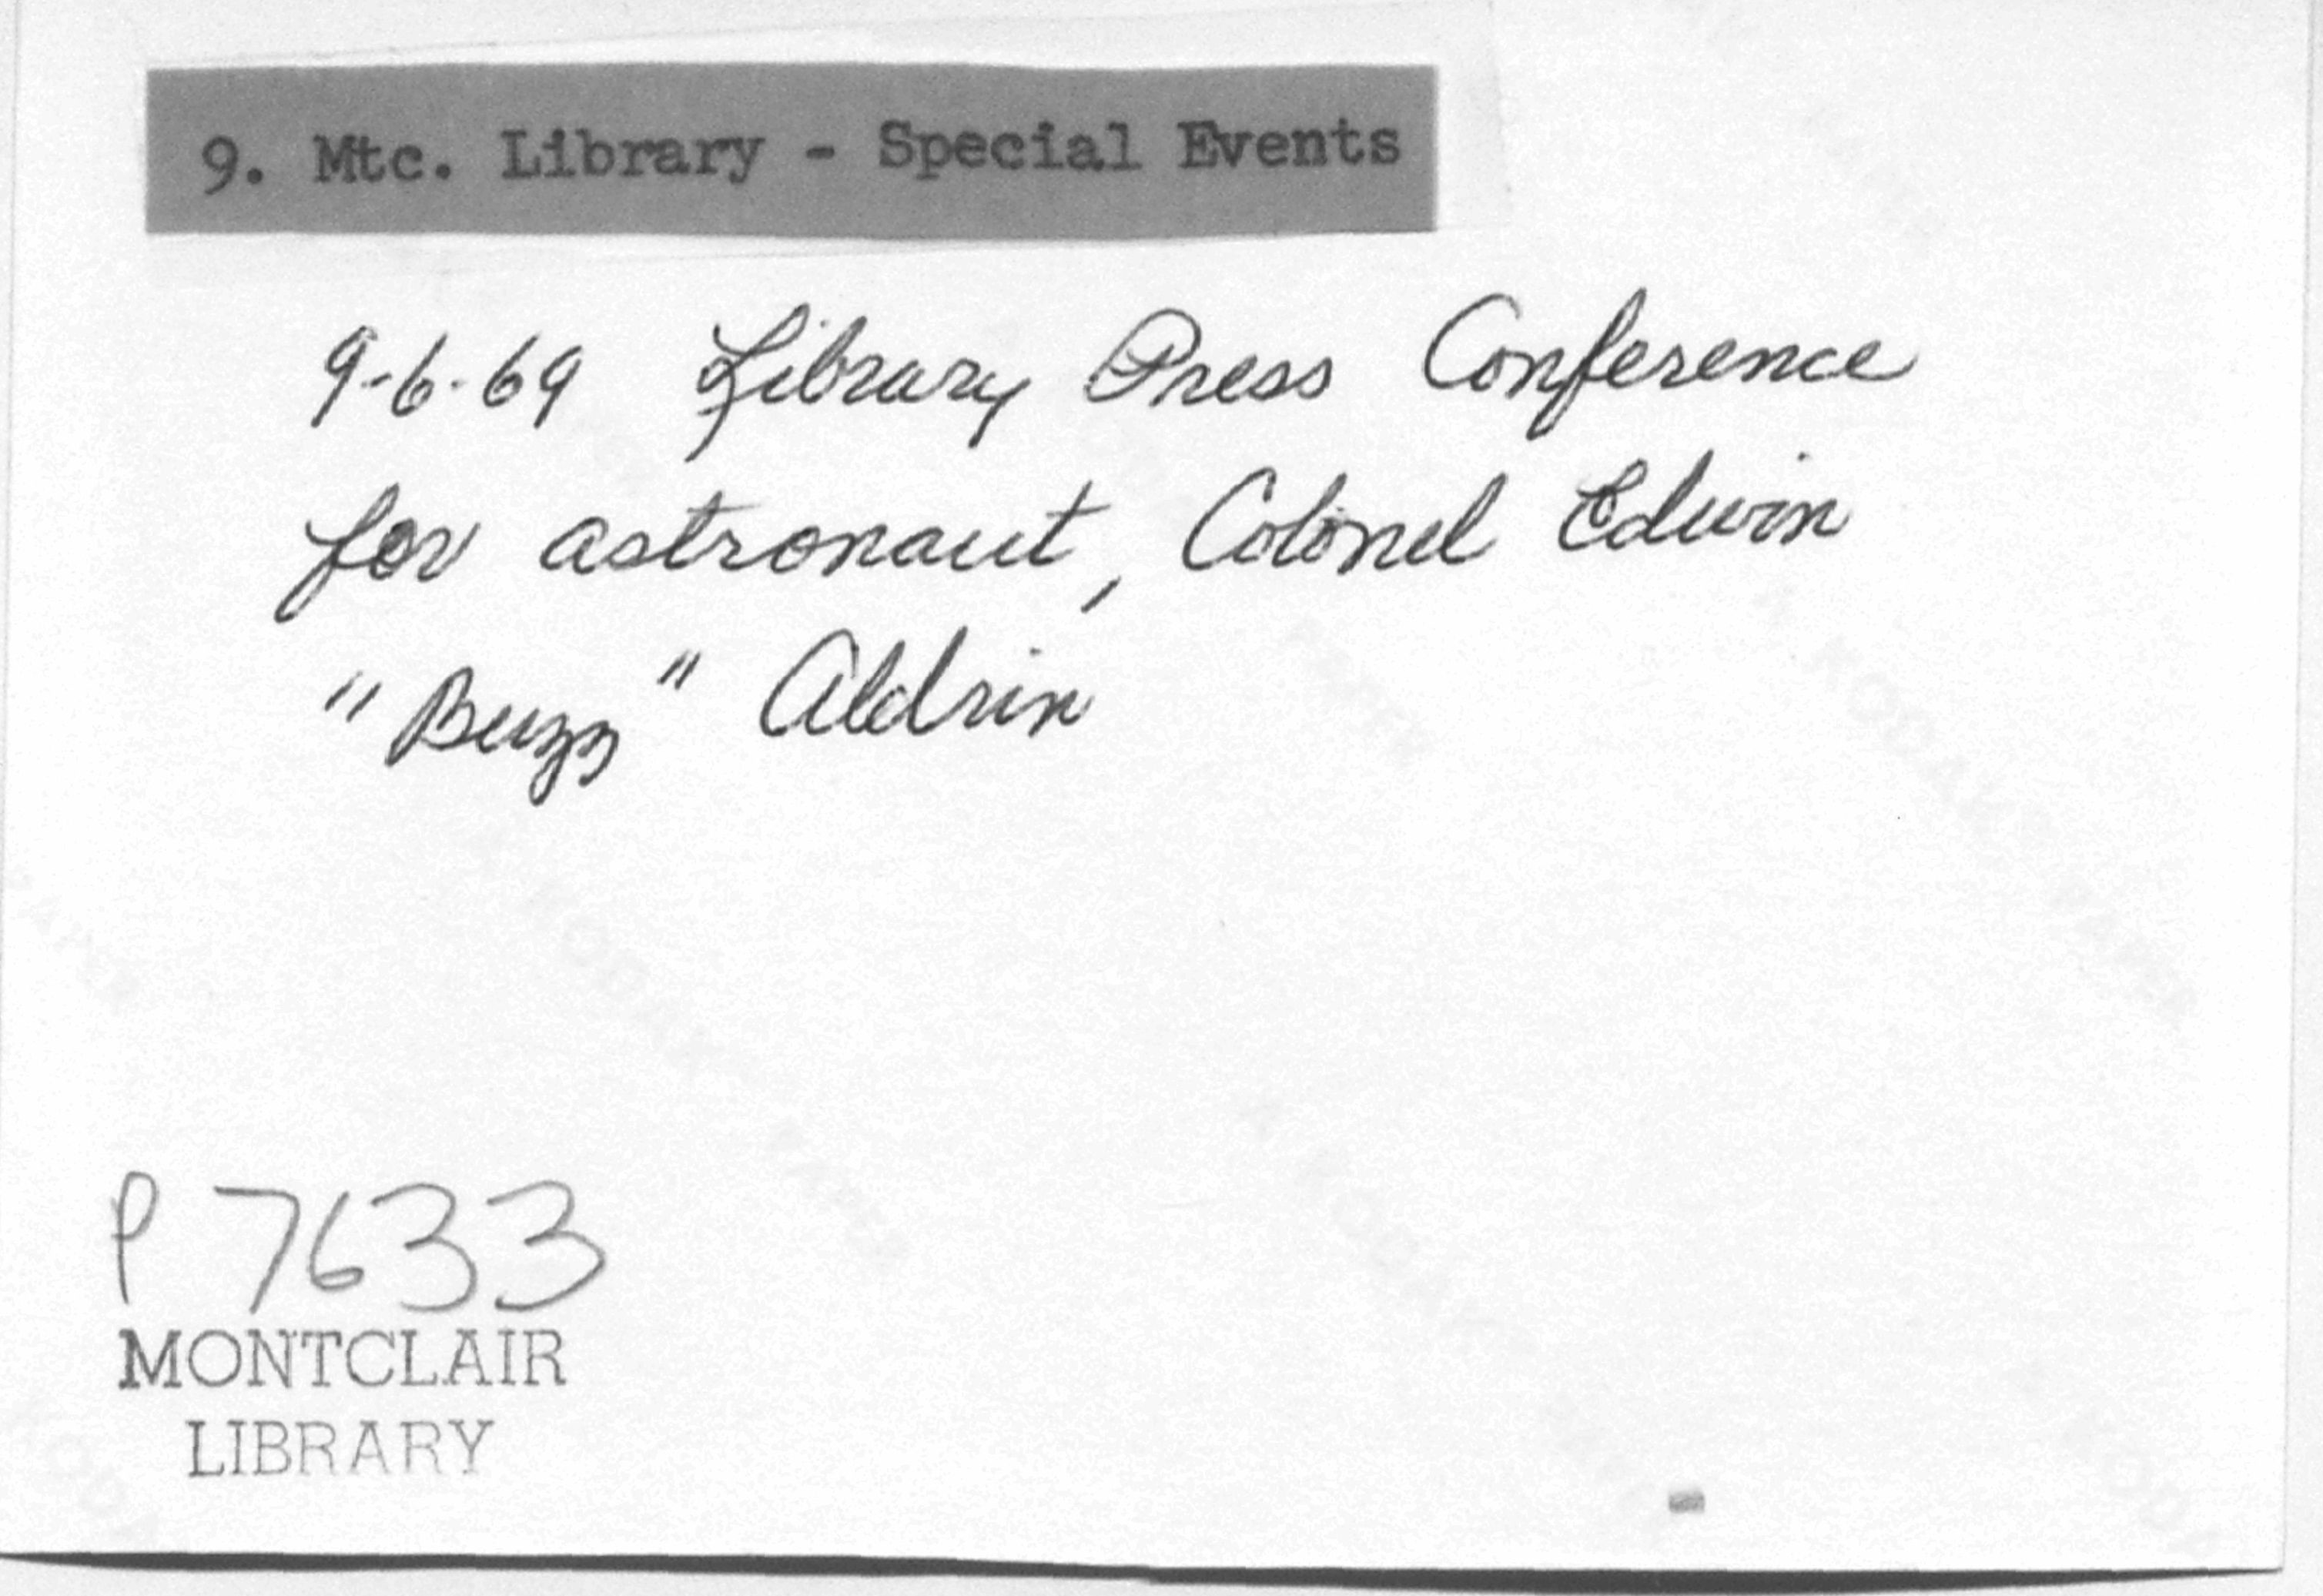 9. Mtc. Library - Special Events
9-6-69 Library Press Conference
for astronaut, Colonel Edwin
"Buzz" Aldrin
P 7633
MONTCLAIR
LIBRARY